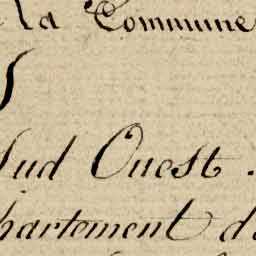 la Commune
Sud Ouest.
partement d